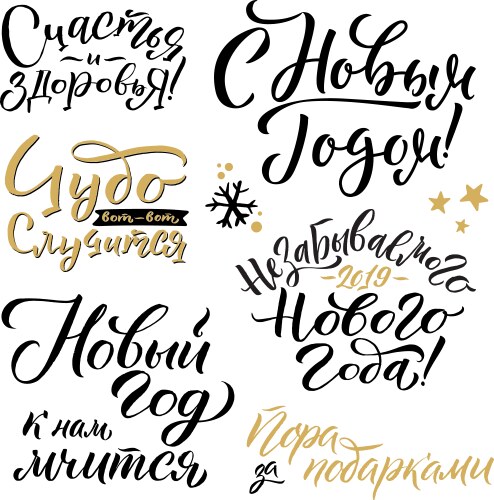 Счастья
и
здоровья!
С Новым
Годом!
Чудо
вот-вот
Случится
Незабываемого
2019
Нового
Года!
Новый
год
к нам
мчится
Пора
за подарками